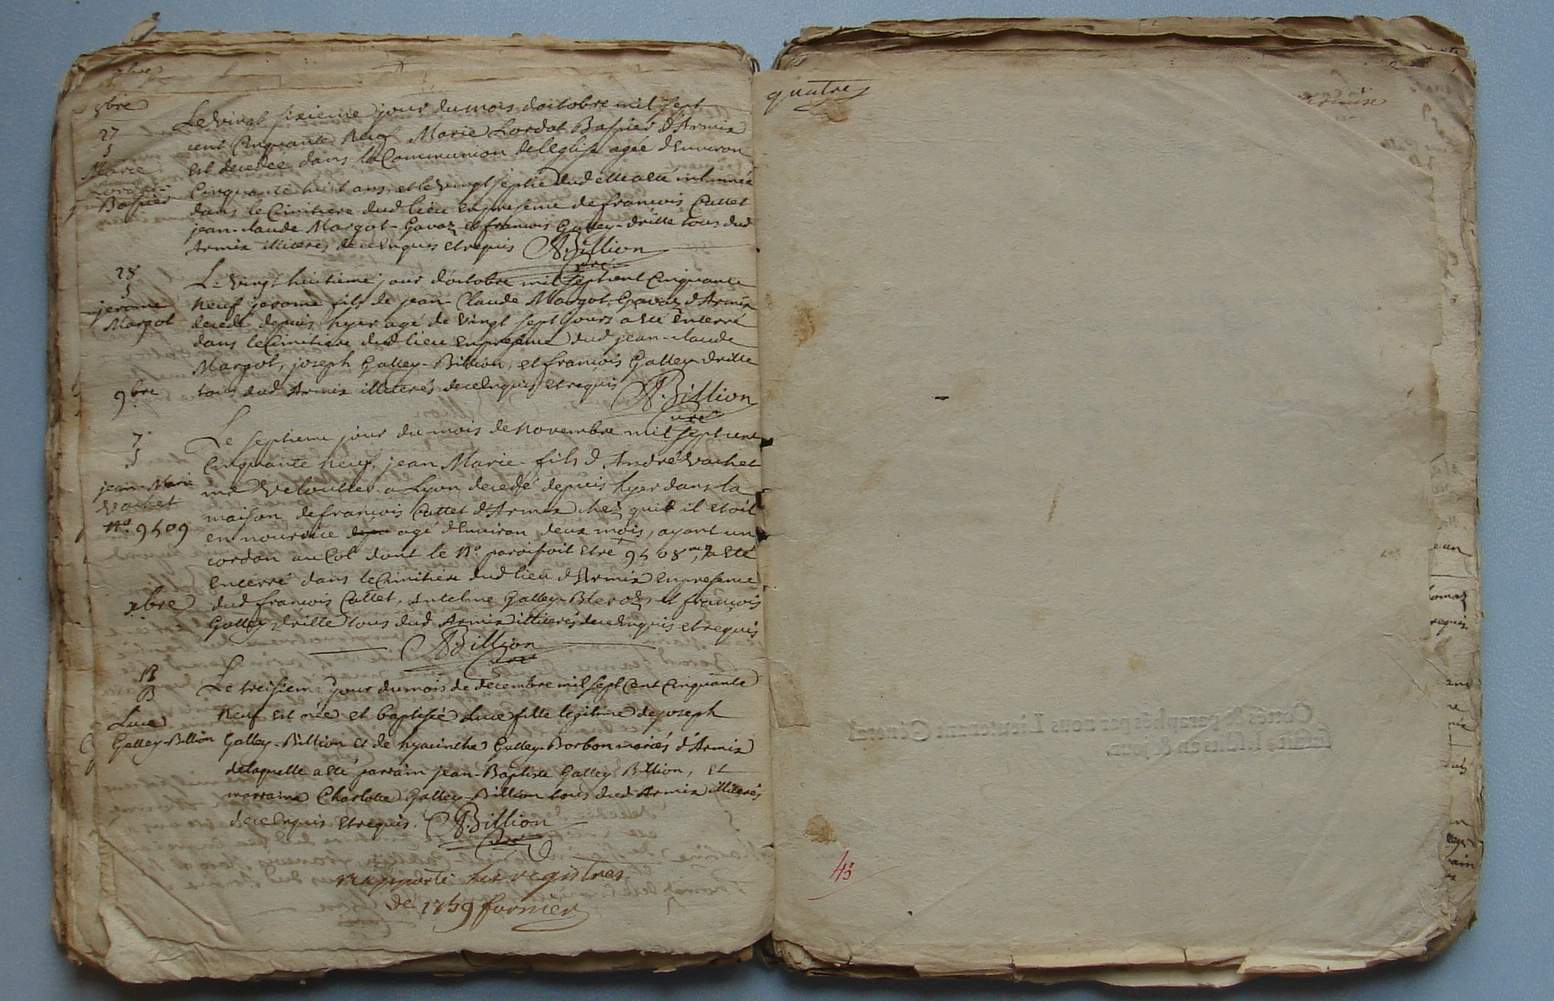 8bre
27
S
Marie
Lordot
Baspier
Le vingt sixieme jour du mois d'octobre mil sept
cent Cinquante Neuf Marie Lordot Baspier d'Armix
est decedée dans la Communion de leglise agée d'Environ
Cinquante huit ans, et le vingt septie dud elle a eté inhumée
dans le Cimitiere dud lieu en presence de francois Cattet
jean-claude Margot-Gavaz et francois Galley-drille tous dud
Armix illiteres de ce enquis et requis ABillion
curé
28
S
jerome
Margot
Le vingt huitieme jour d'octobre mil sept cent Cinquante
Neuf jerome fils de jean Claude Margot-Gavaz d'Armix
decedé depuis hyer agé de vingt sept jours a eté enterré
dans le Cimitiere dud lieu en presence dud jean-claude
Margot, joseph Galley-Billion, et francois Galley-drille
tous dud Armix illiterés de ce enquis et requis ABillion
curé
9bre
7
S
jean-Marie
Vachet
No 9409
Le septieme jour du mois de Novembre mil sept cent
Cinquante neuf jean Marie fils d'André Vachet
me veloutier a Lyon decedé depuis hyer dans la
maison de francois Cattet d'Armix chez qui il etoit
en nourrice agé d'Environ deux mois, ayant un
cordon au Col dont le No paroissoit etre 9408 a eté
enterré dans le Cimitiere dud lieu d'Armix en presence
dud francois Cattet, Antelme Galley-Bleroz et francois
Galley drille tous dud Armix illiterés de ce enquis et requis
ABillion
curé
xbre
13
B
Luce
Galley-Billion
Le treisieme jour du mois de decembre mil sept Cent Cinquante
Neuf est née et baptisée Luce fille legitime de joseph
Galley-Billion et de hyacinthe Galley-Borbon mariés d'Armix
de laquelle a eté parrain jean-Baptiste Galley Billion, et
marraine Charlotte Galley-Billion tous dud Armix illiterés
de ce enquis et requis. ABillion
curé
rapporté sur registres
de 1759 fornier
quatre
43